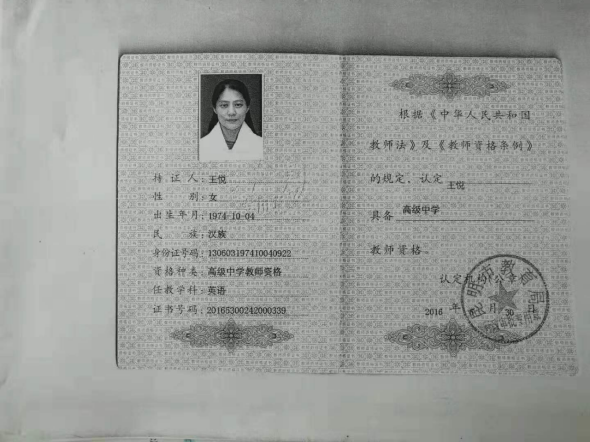 持证人：王悦
性别：女
出生年月：1974-10-04
民族：汉族
身份证号码：130603197410040922
资格种类：高级中学教师资格
任教学科：英语
证书号码：20165300242000339
根据《中华人民共和国
教师法》及《教师资格条例》
的规定，认定 王悦
具备 高级中学
教师资格。
认定机构（公章）
2016 年 月 30 日
昆明市教育局